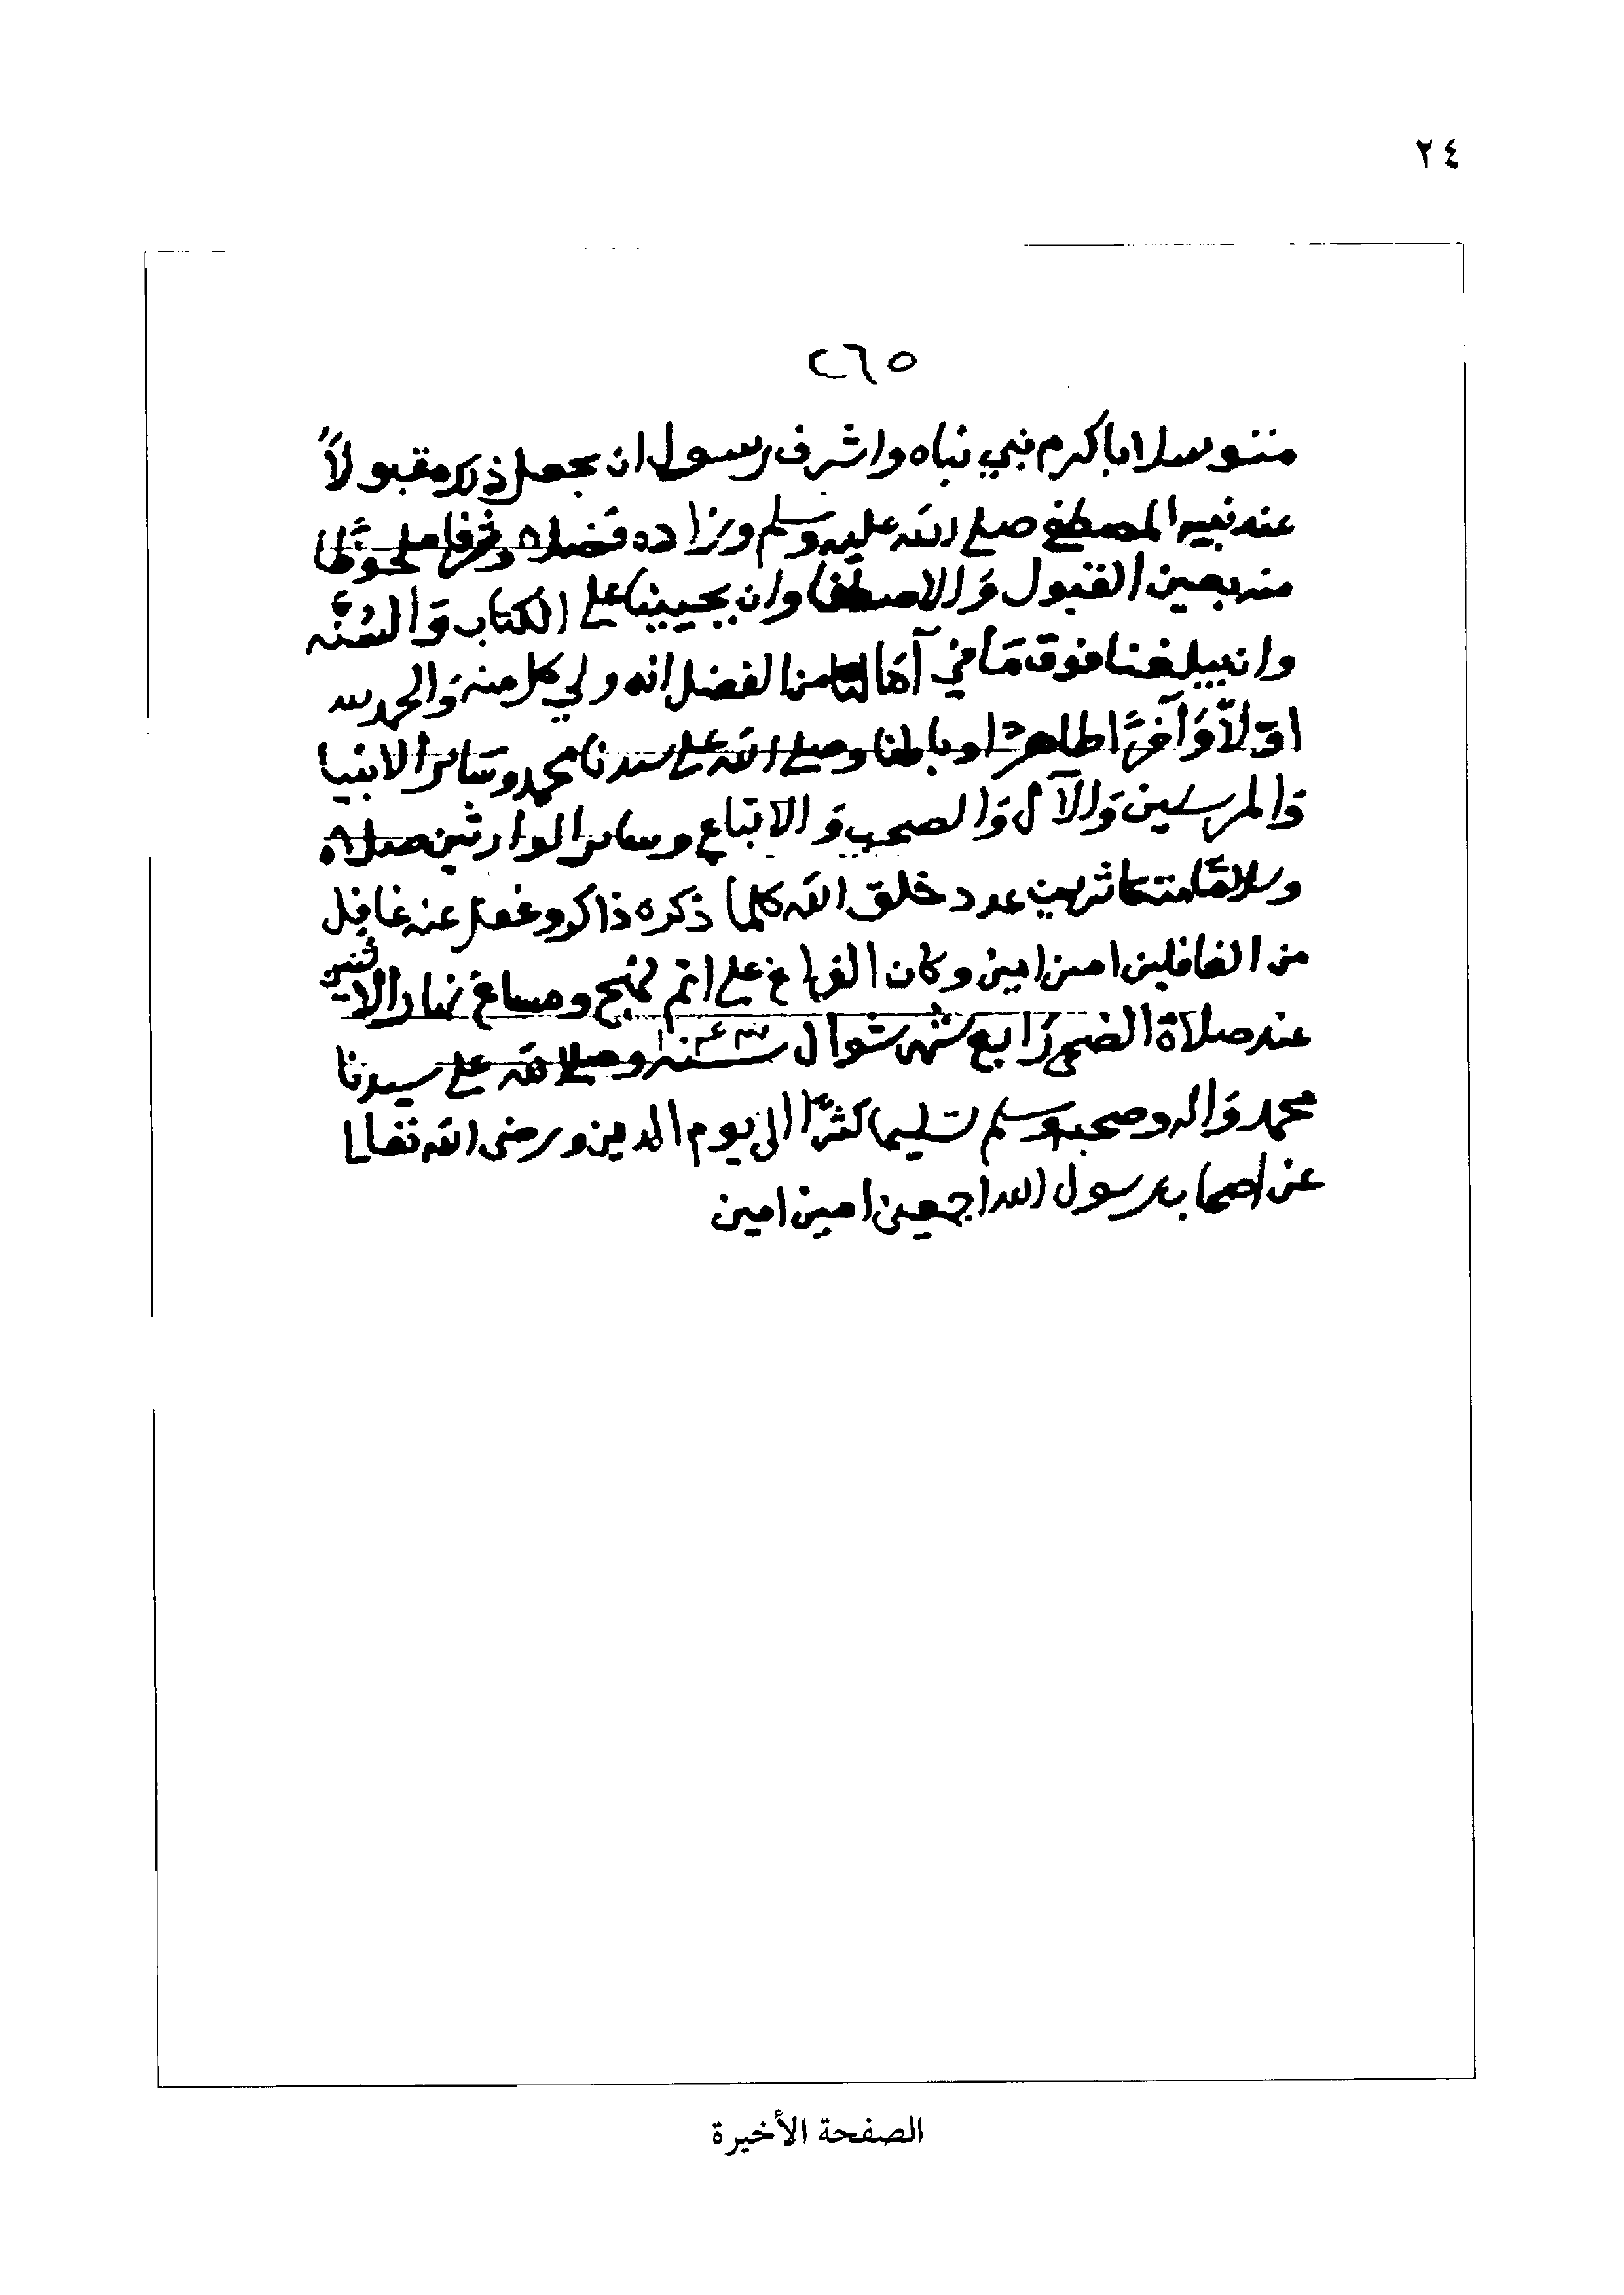 ٢٤
٢٦٥
متوسلا باكرم نبي نباه واشرف رسول ان يجعل ذلك مقبولاً
عند نبيه المصطفى صلى الله عليه وسلم وزاده فضلا وشرفا ملحوظا
منه بعين القبول وَالاصطفا وان يحيينا على الكتاب وَالسُنَّه
وان يبلغنا فوق مَا في آمَالنا من الفضل انه ولي كل منه وَالحمد لله
اوّلاً وَآخرًا ظاهرًا وباطنا وصلى الله على سيدنا محمد وسَائر الانبيا
وَالمرسلين وَالآل وَالصحب وَالاتباع وسائر الوارثين صلاة
وسلامًا متكاثرين عدد خلق الله كلما ذكره ذاكر وغفل عنه غافل
من الغافلين امين امين وكان الفراغ على اتم نهج ومساغ نهار الاثنين
عند صلاة الضحى رَابع شهر شوال سنة وصلى الله على سيدنا
محمد وَاله وصحبه وسلم تسليما كثيرًا الى يوم الدين ورضى الله تعالى
عن اصحاب رسول الله اجمعين امين امين
الصفحة الأخيرة